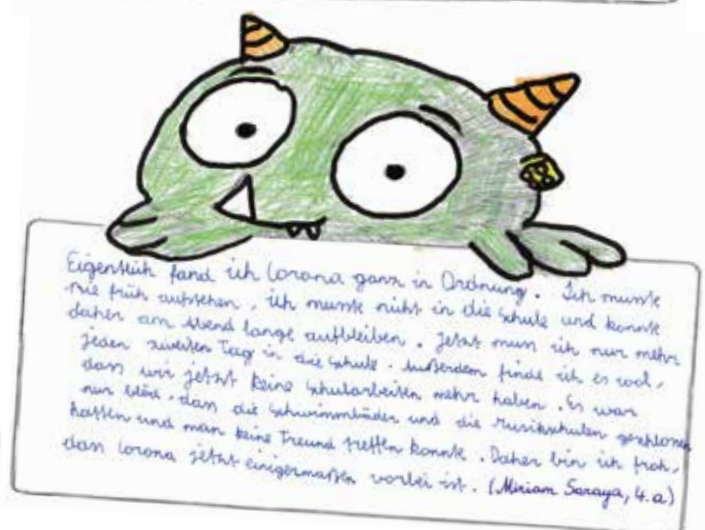 Eigentlich fand ich Corona ganz in Ordnung. Ich musste
nie früh aufstehen, ich musste nicht in die Schule und konnte
daher am Abend lange aufbleiben. Jetzt muss ich nur mehr
jeden zweiten Tag in die Schule. Außerdem finde ich es cool,
dass wir jetzt keine Schularbeiten mehr haben. Es war
nur blöd, dass die Schwimmbäder und die Musikschulen geschlossen
hatten und man keine Freund treffen konnte. Daher bin ich froh,
dass Corona jetzt einigermaßen vorbei ist. (Miriam Soraya, 4.a)